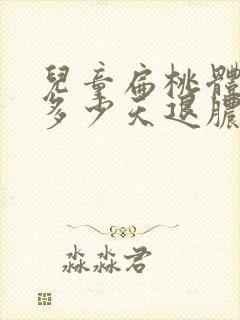 兒童扁桃體
多少天退膿
淼淼君